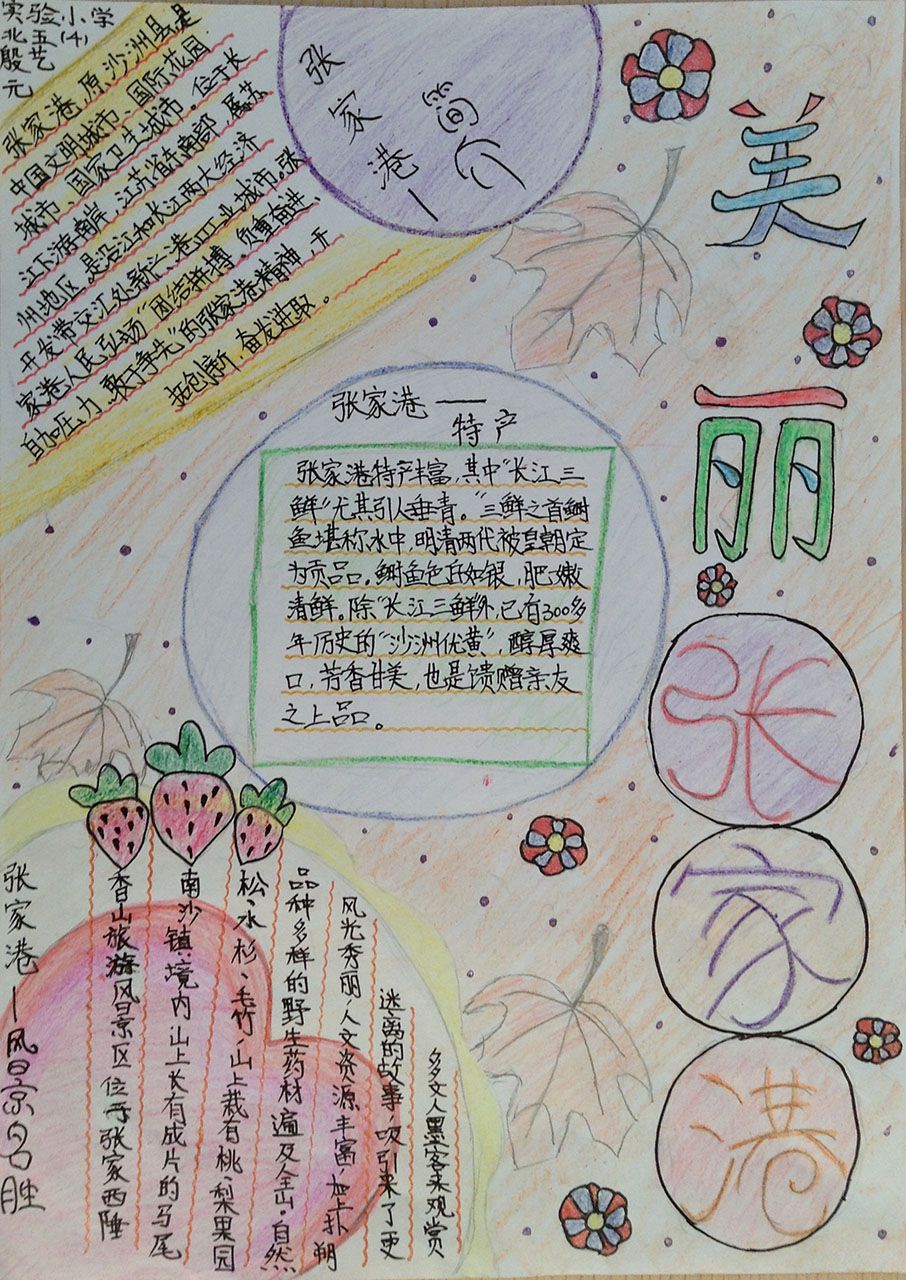 实验小学
北五(4)
殷艺
元
张家港一
简介
张家港,原沙洲县,是
中国文明城市,国际花园
城市,国家卫生城市。位于长
江下游南岸,江苏省东南部,属苏
州地区。是沿江和长江两大经济
开发带交汇处新兴港口工业城市,张
家港人民弘扬“团结拼搏、负重奋进、
自加压力、敢于争先”的张家港精神,开
拓创新,奋发进取。
美丽
张家港
张家港——
特产
张家港特产丰富,其中“长江三
鲜”尤其引人垂青。“三鲜之首鲥
鱼堪称水中,明清两代被皇朝定
为贡品。鲥鱼色白如银,肥嫩
清鲜。除“长江三鲜外,已有300多
年历史的“沙洲优黄”,醇厚爽
口,芳香甘美,也是馈赠亲友
之上品。
张家港一风景名胜
香山旅游风景区位于张家西陲
南沙镇境内山上长有成片的马尾
松、水杉、毛竹,山上栽有桃、梨果园
品种多样的野生药材遍及全山。自然
风光秀丽,人文资源丰富,加上扑朔
迷离的故事,吸引来了更
多文人墨客来观赏